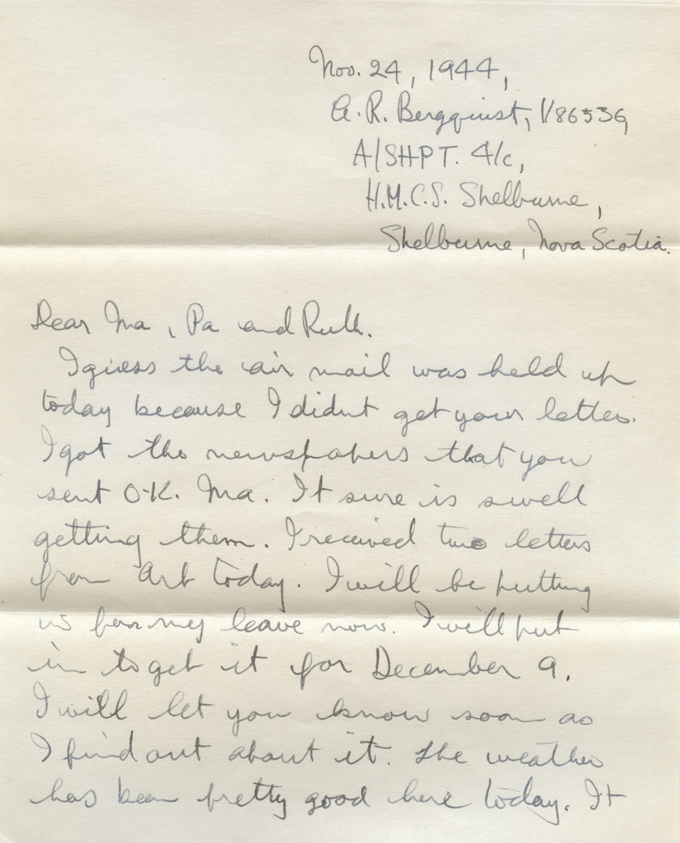 Nov. 24, 1944,
A. R. Bergquist, V86536,
A/SHPT. 4/c,
H.M.C.S. Shelburne,
Shelburne, Nova Scotia.
Dear Ma, Pa and Ruth.
I guess the air mail was held up
today because I didnt get your letter.
I got the newspapers that you
sent O.K. Ma. It sure is swell
getting them. I received two letters
from Art today. I will be putting
in for my leave now. I will put
in to get it for December 9.
I will let you know soon as
I find out about it. The weather
has been pretty good here today. It